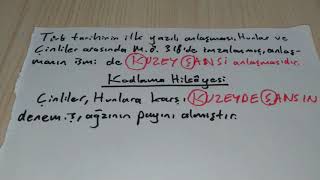 Türk tarihinin ilk yazılı anlaşması, Hunlar ve
Çinliler arasında M.Ö. 318'de imzalanmış, anlaş-
manın ismi de KUZEY ŞANSİ anlaşmasıdır.
Kodlama Hikâyesi
Çinliler, Hunlara karşı KUZEYDE ŞANSIN
denem.ş, ağzının payını almıştır.